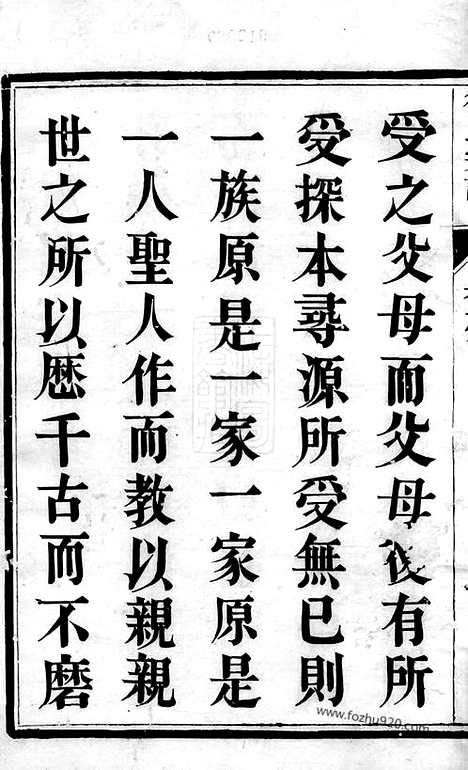 受之父母而父母復有所
受探本尋源所受無已則
一族原是一家一家原是
一人聖人作而教以親親
世之所以歷千古而不磨
www.fozhu920.com